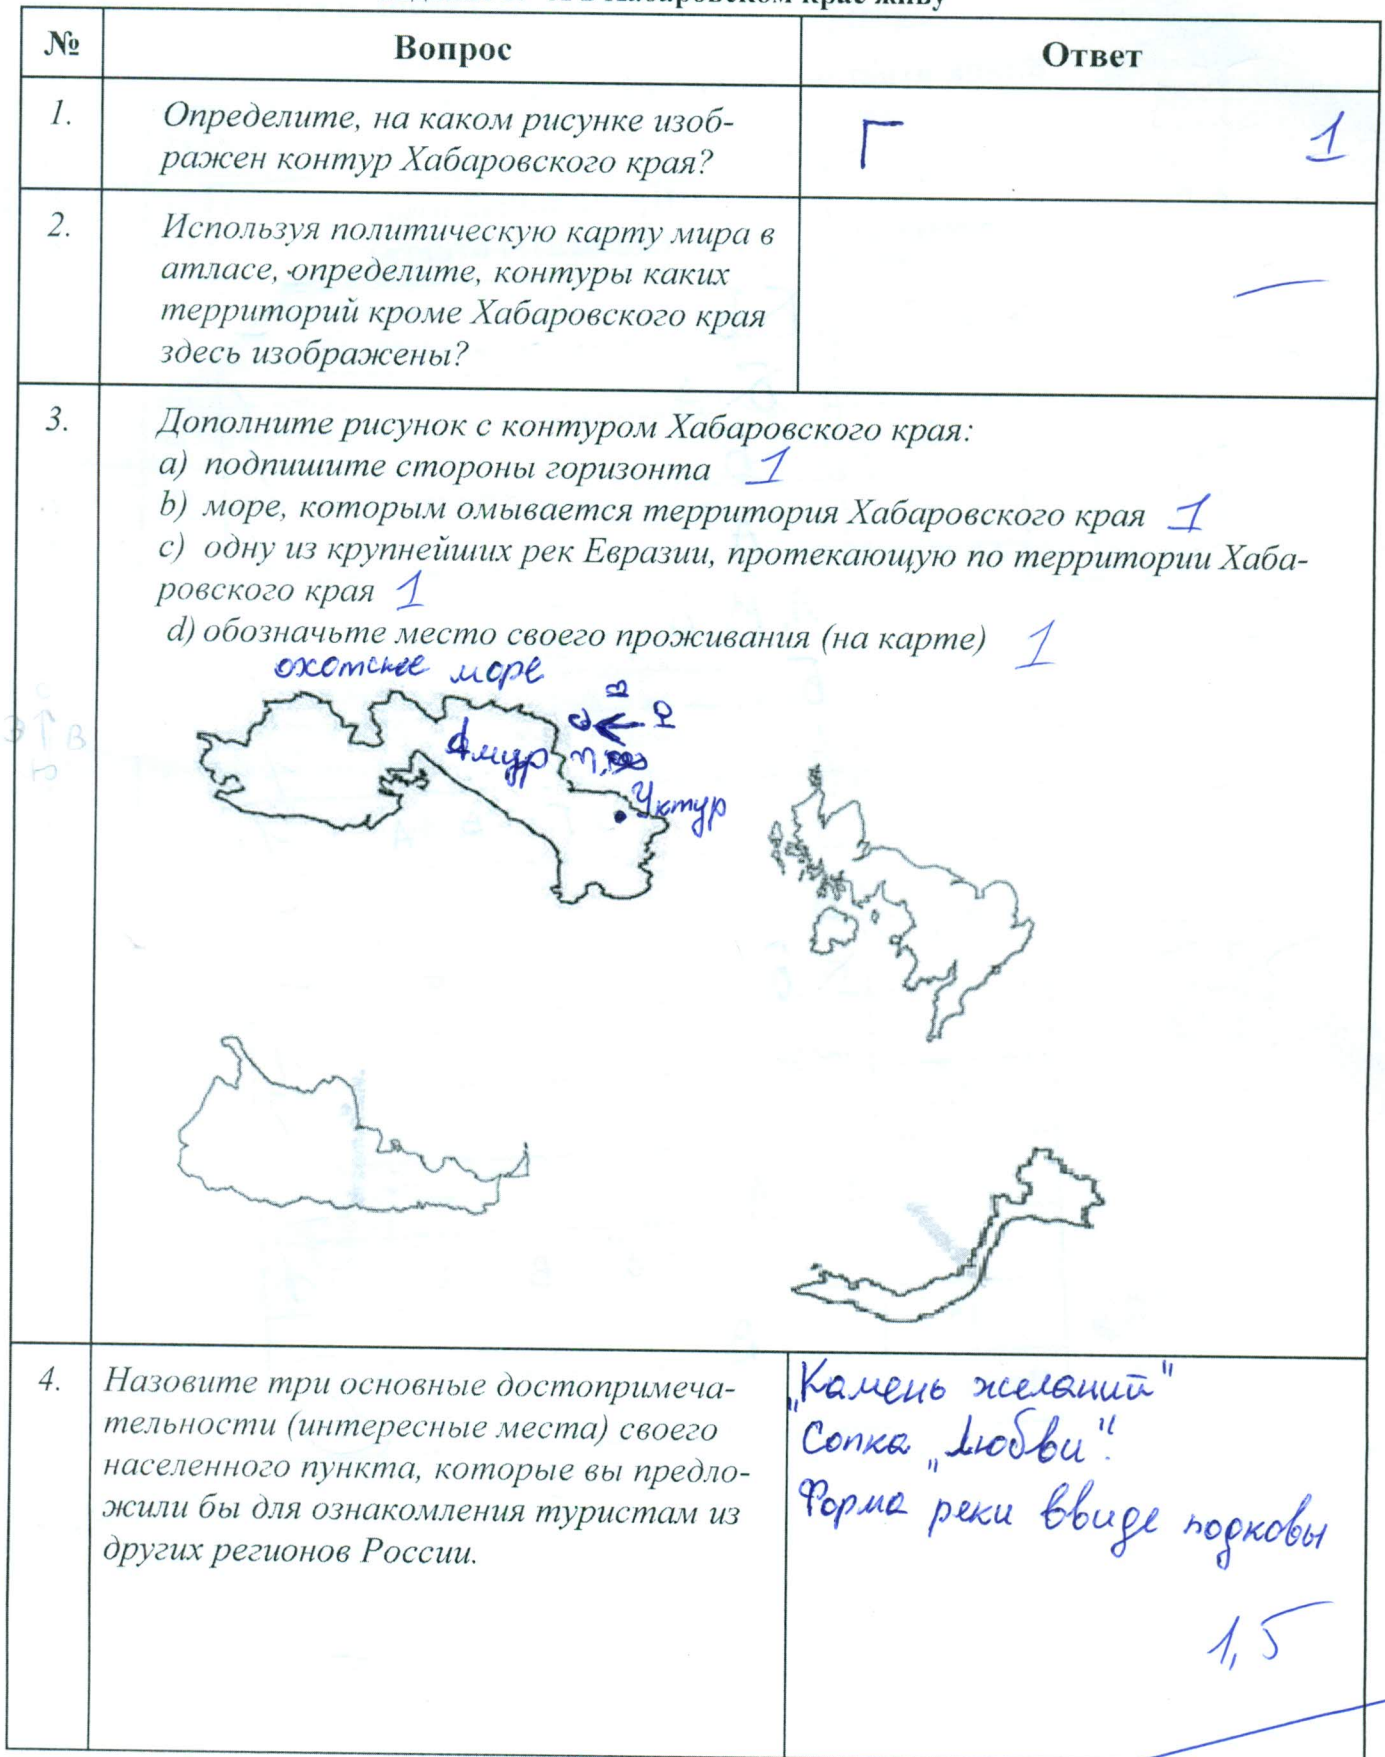 Хабаровском крае живу
№ Вопрос Ответ
1. Определите, на каком рисунке изоб-
ражен контур Хабаровского края?
Г 1
2. Используя политическую карту мира в
атласе, определите, контуры каких
территорий кроме Хабаровского края
здесь изображены?
—
3. Дополните рисунок с контуром Хабаровского края:
a) подпишите стороны горизонта 1
b) море, которым омывается территория Хабаровского края 1
c) одну из крупнейших рек Евразии, протекающую по территории Хаба-
ровского края 1
d) обозначьте место своего проживания (на карте) 1
охотское море
В
С
Амур
Уктур
4. Назовите три основные достопримеча-
тельности (интересные места) своего
населенного пункта, которые вы предло-
жили бы для ознакомления туристам из
других регионов России.
„Камень желаний"
Сопка „Любви".
Форма реки ввиде подковы
1,5